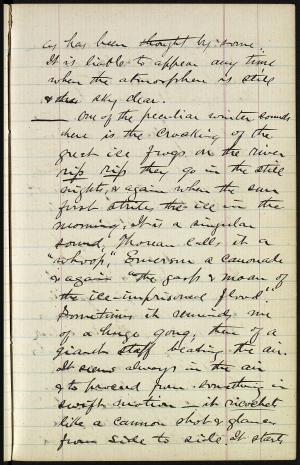 as has been thought by some.
It is liable to appear any time
when the atmosphere is still
& the sky clear.
One of the peculiar winter sounds
here is the croaking of the
great ice frogs on the river
rip rip they go in the still
nights, & again when the sun
first strikes the ice in the
morning. It is a singular
sound, Thoreau calls it a
"whoop," Emerson a canonade
& again "the gasp & moan of
the ice-imprisoned flood."
Sometimes it reminds me
of a huge gong, then of a
giant's staff beating the air.
It seems always in the air
& to proceed from something in
swift motion - it ricochets
like a cannon shot & glances
from side to side It starts